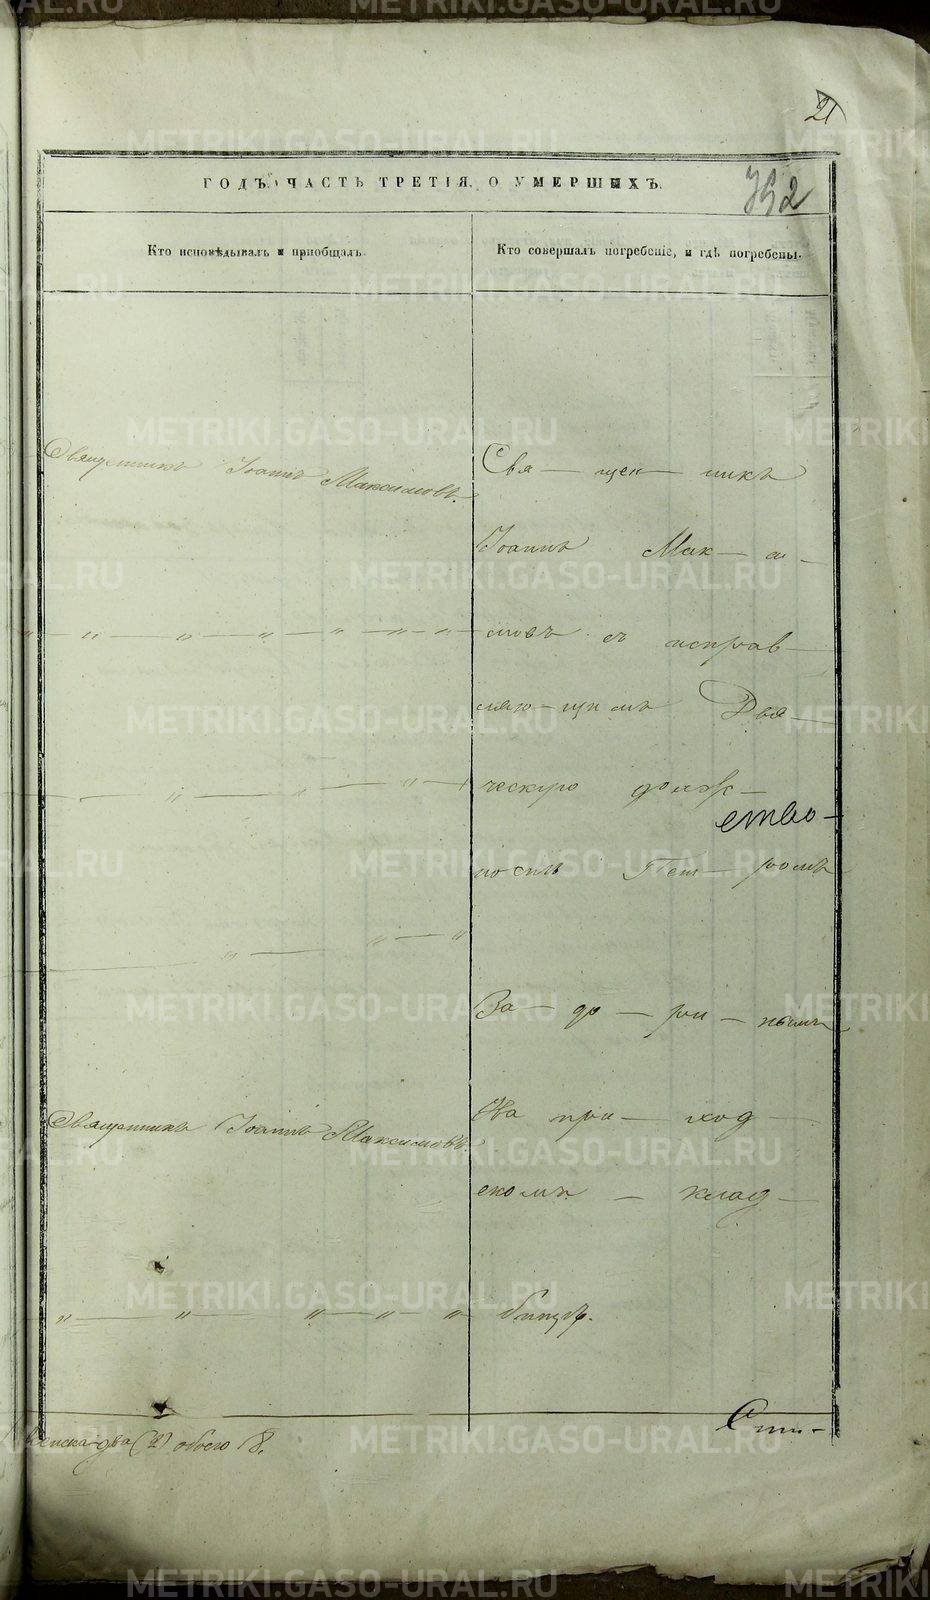 21
352
ГОДЪ. ЧАСТЬ ТРЕТІЯ, О УМЕРШИХЪ.
Кто исповѣдывалъ и пріобщалъ.
Кто совершалъ погребеніе, и гдѣ погребены.
Священникъ Іоаннъ Максимовъ.
Свя — щен — никъ
Іоаннъ Мак — си —
" — " — " — " — " — " — "
мовъ съ исправ —
ляю — щимъ Дья —
" — " — "
ческую долж —
ство —
ностъ Пет — ромъ
" — " — "
За — до — ри — нымъ
Священникъ Іоаннъ Максимовъ.
На при — ход —
скомъ — клад —
" — " — " — " — "
бищѣ.
женска два (2) обоего 8.
METRIKI.GASO-URAL.RU